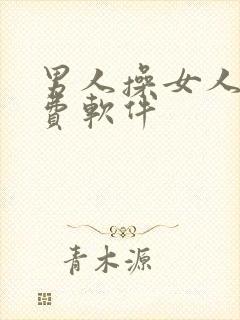 男人操女人
費軟件
青木源